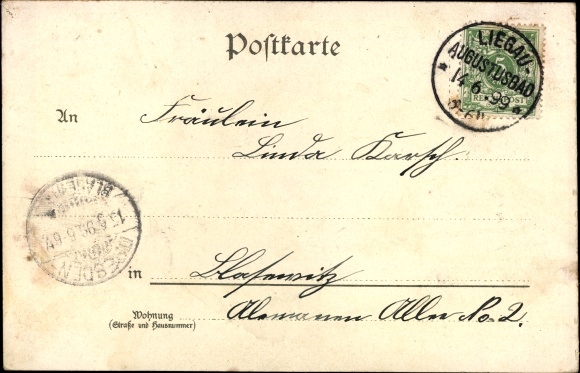 Postkarte
LIEGAU-
AUGUSTUSBAD
14 6 99
5
REICHSPOST
An Fräulein
Linda Karsch.
DRESDEN
in Blasewitz
Wohnung
(Straße und Hausnummer)
Alemanen Allee No. 2.